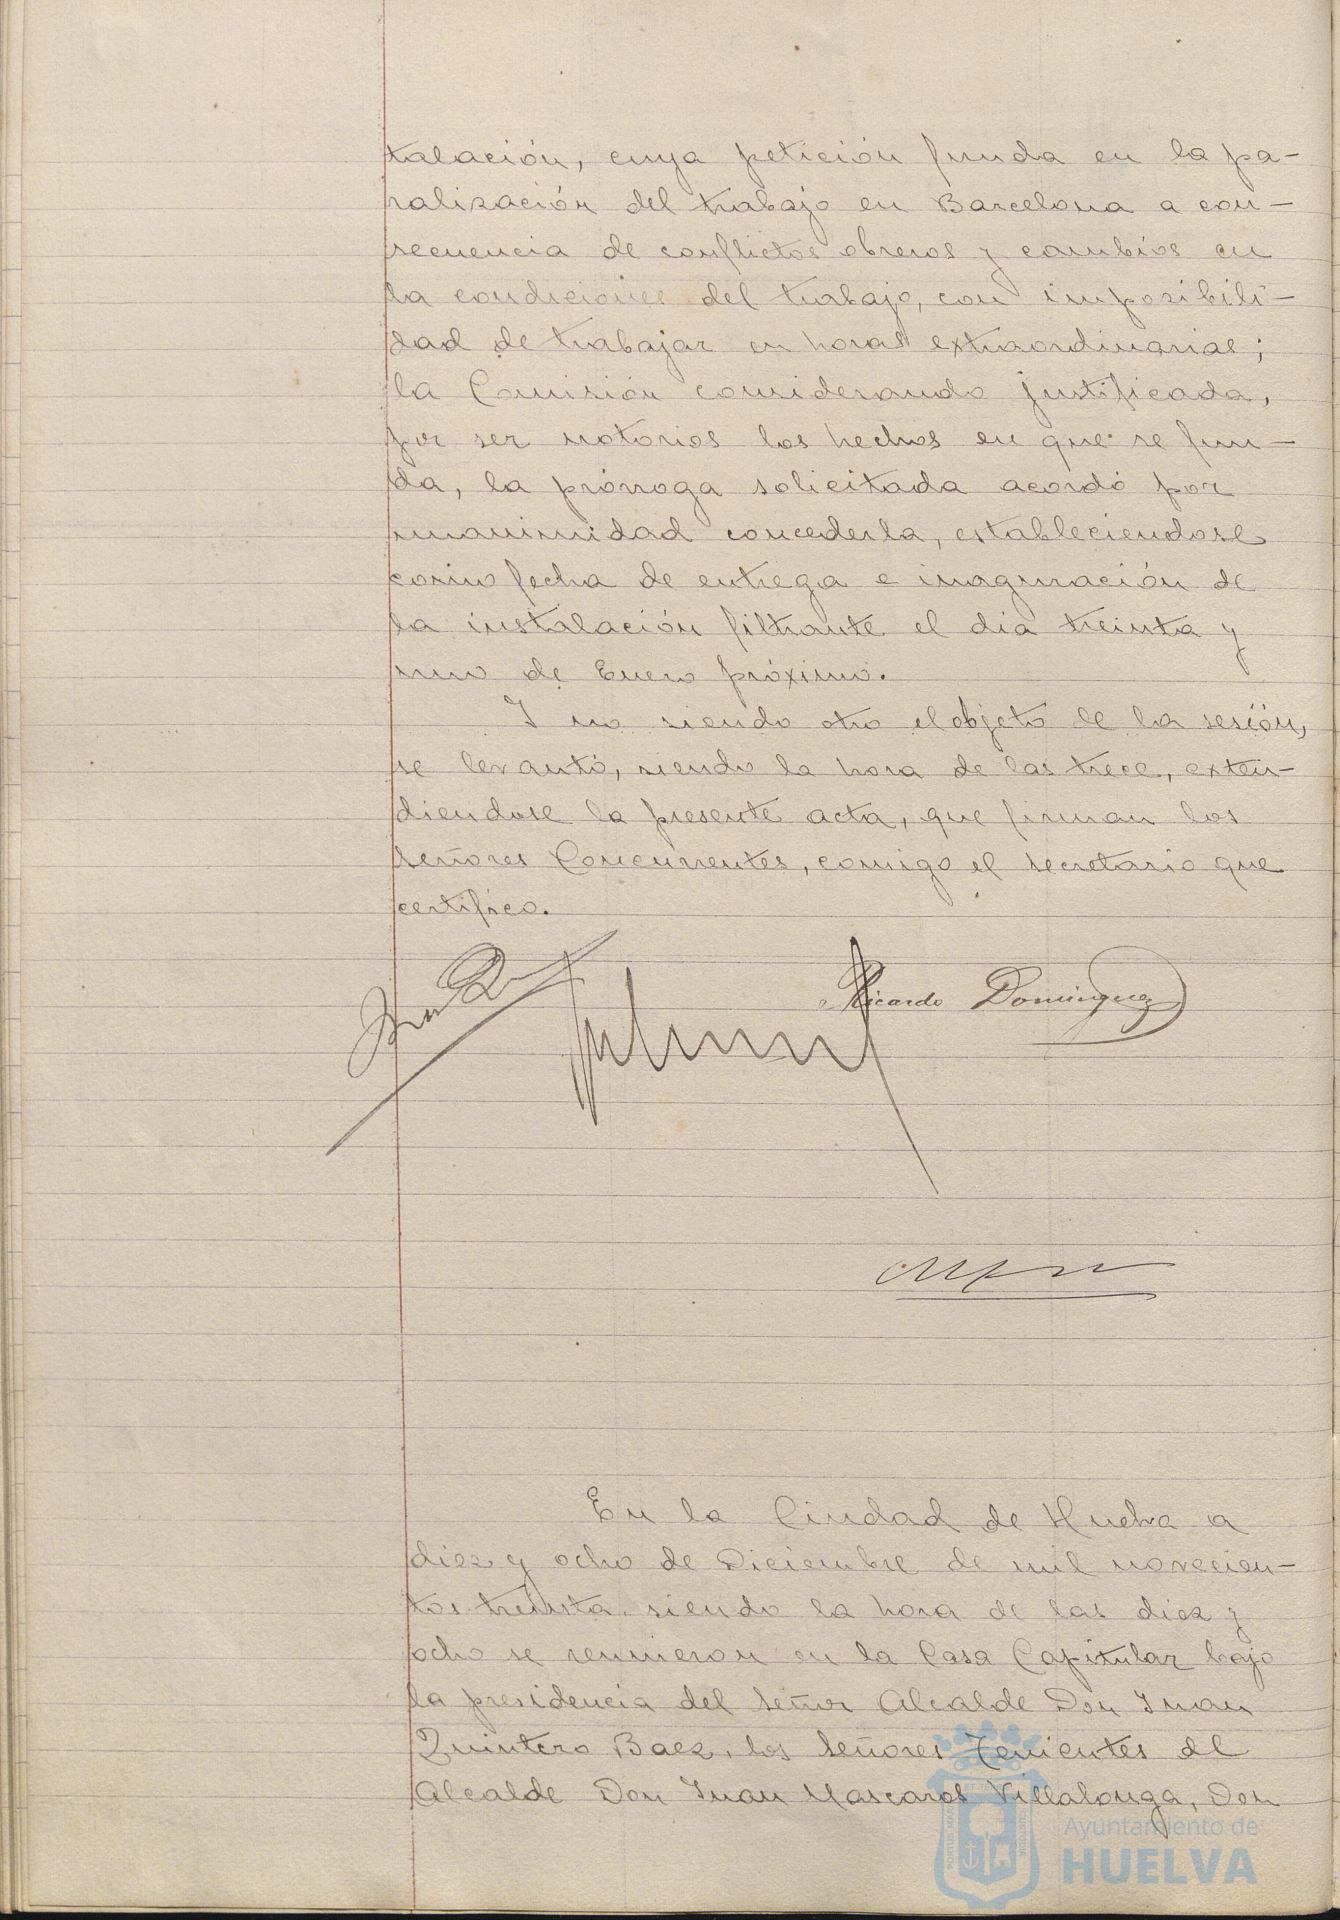 talación, cuya petición funda en la pa-
ralización del trabajo en Barcelona a con-
secuencia de conflictos obreros y cambios en
la condiciones del trabajo, con imposibili-
dad de trabajar en horas extraordinarias;
la Comisión considerando justificada,
por ser notorios los hechos en que se fun-
da, la prórroga solicitada acordó por
unanimidad concederla, estableciendose
como fecha de entrega e inaguración de
la instalación filtrante el dia treinta y
uno de Enero próximo.
Y no siendo otro el objeto de la sesión,
se levantó, siendo la hora de las trece, exten-
diendose la presente acta, que firman los
señores Concurrentes, comigo el secretario que
certifico.
Ricardo Dominguez
En la Ciudad de Huelva a
diez y ocho de Diciembre de mil novecien-
tos treinta, siendo la hora de las diez y
ocho se reunieron en la Casa Capitular bajo
la presidencia del Señor Alcalde Don Juan
Quintero Baez, los Señores Tenientes de
Alcalde Don Juan Mascarós Villalonga, Don
Ayuntamiento de
HUELVA